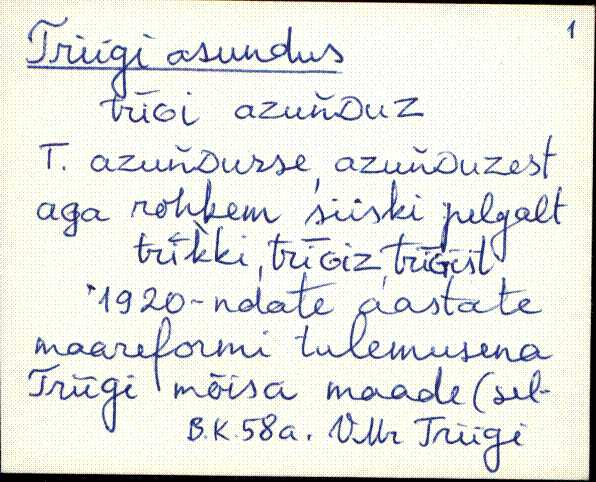 1
Triigi asundus
trīGi azuňDuz
T. azuňDusse, azuňDuzest
aga rohkem siiski pelgalt
trīkki, trīGiz, trīGist
1920-ndate aastate
maareformi tulemusena
Triigi mõisa maade (sel-
B.K.58a. VMr Triigi